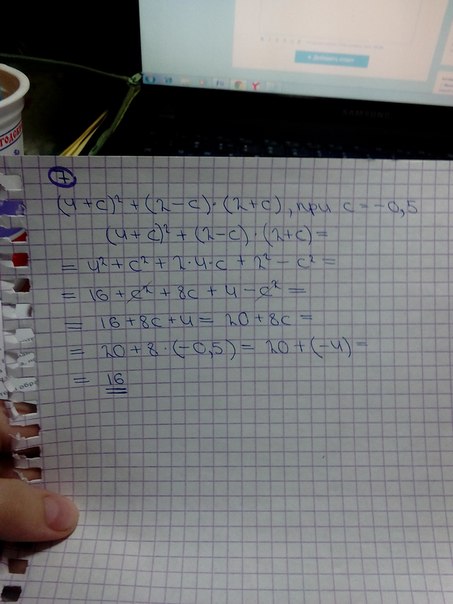 7
(4+c)² + (2-c)·(2+c), при c = -0,5
(4+c)² + (2-c)·(2+c) =
= 4² + c² + 2·4·c + 2² - c² =
= 16 + c² + 8c + 4 - c² =
= 16 + 8c + 4 = 20 + 8c =
= 20 + 8·(-0,5) = 20 + (-4) =
= 16
SAMSUNG